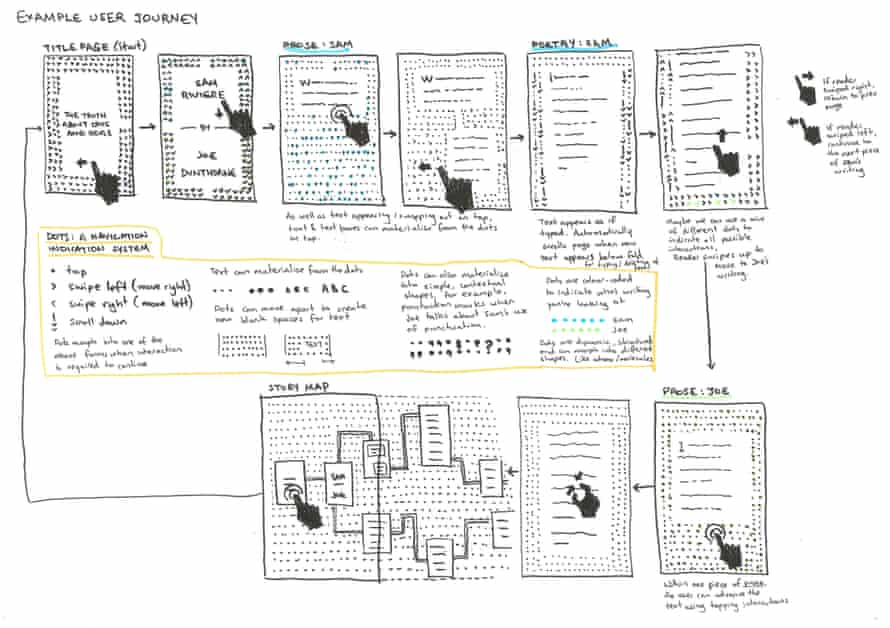 EXAMPLE USER JOURNEY
TITLE PAGE (Start)
THE TRUTH
ABOUT CATS
AND DOGS
SAM
RIVIERE
BY
JOE
DUNTHORNE
PROSE: SAM
W
W
As well as text appearing/mapping out on tap,
text & text boxes can materialise from the dots
on tap.
POETRY: SAM
Text appears as if
typed. Automatically
scrolls page when new
text appears below fold
for typing/
text
Maybe we can use a mix
of different dots to
indicate all possible
interactions.
Reader swipes up to
move to Joe's
writing.
If reader
swiped right,
return to prev
page
If reader
swiped left,
continue to
the next piece
of Sam's
writing
DOTS: A NAVIGATION
INDICATION SYSTEM
• tap
> swipe left (move right)
< swipe right (move left)
scroll down
Dots morph into one of the
above forms when interaction
is required to continue
Text can materialise from the dots
ABC ABC
Dots can move apart to create
new blank spaces for text
TEXT
Dots can also materialise
into simple, contextual
shapes, for example,
punctuation marks when
Joe talks about Sam's use
of punctuation.
Dots are colour-coded
to indicate who's writing
you're looking at
Sam
Joe
Dots are dynamic, structured
and can morph into different
shapes. Like atoms/molecules
STORY MAP
SAM
JOE
PROSE: JOE
I
Within one piece of prose,
user can advance the
text using tapping interactions